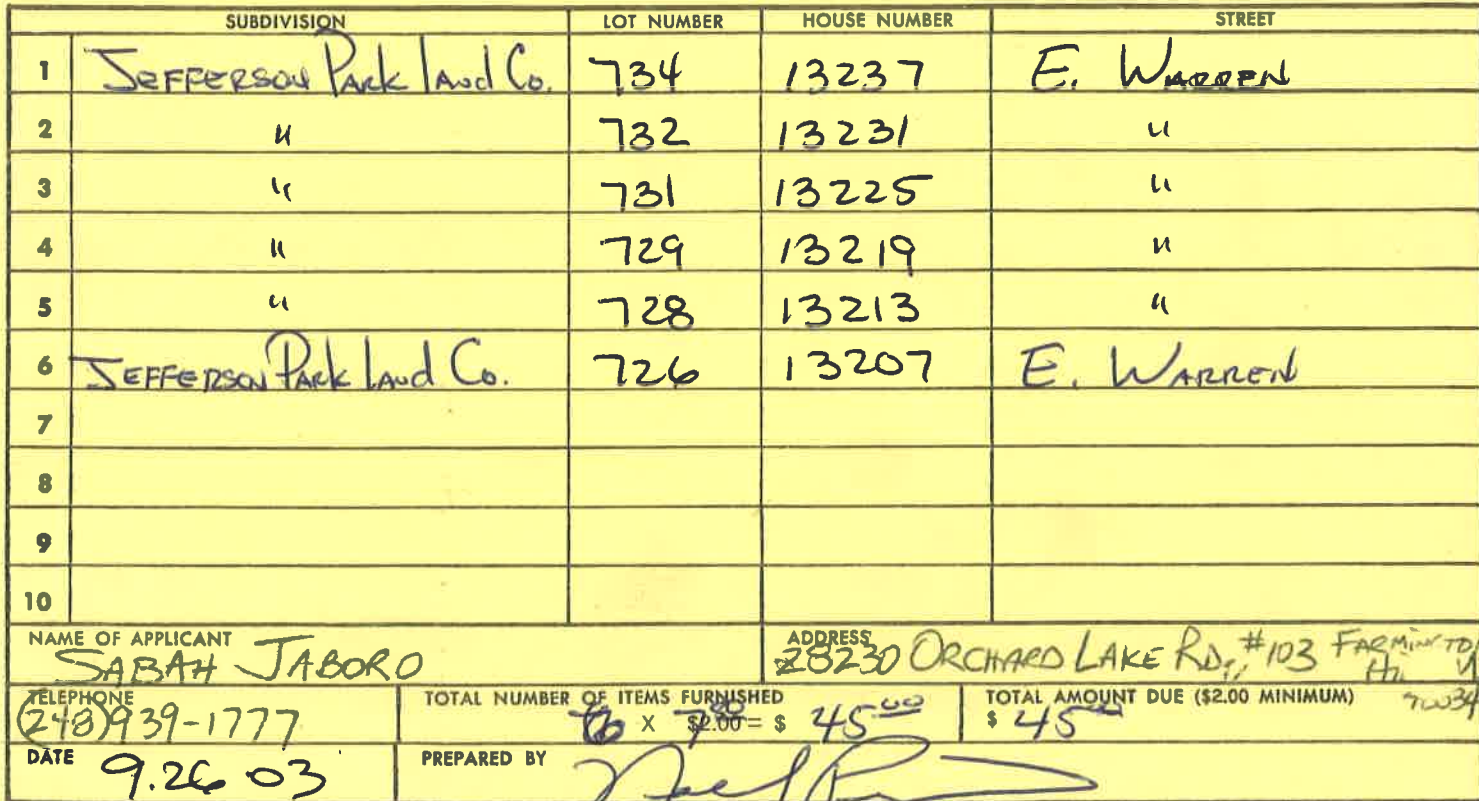 SUBDIVISION LOT NUMBER HOUSE NUMBER STREET
1 JEFFERSON PARK LAND CO. 734 13237 E. WARREN
2 " 732 13231 "
3 " 731 13225 "
4 " 729 13219 "
5 " 728 13213 "
6 JEFFERSON PARK LAND CO. 726 13207 E. WARREN
7
8
9
10
NAME OF APPLICANT ADDRESS
SABAH JABORO 28230 ORCHARD LAKE RD, #103 FARMINGTON
TELEPHONE TOTAL NUMBER OF ITEMS FURNISHED TOTAL AMOUNT DUE ($2.00 MINIMUM)
(248) 939-1777 6 X $2.00 = $ 45.00 $ 45
DATE 9.26 03 PREPARED BY